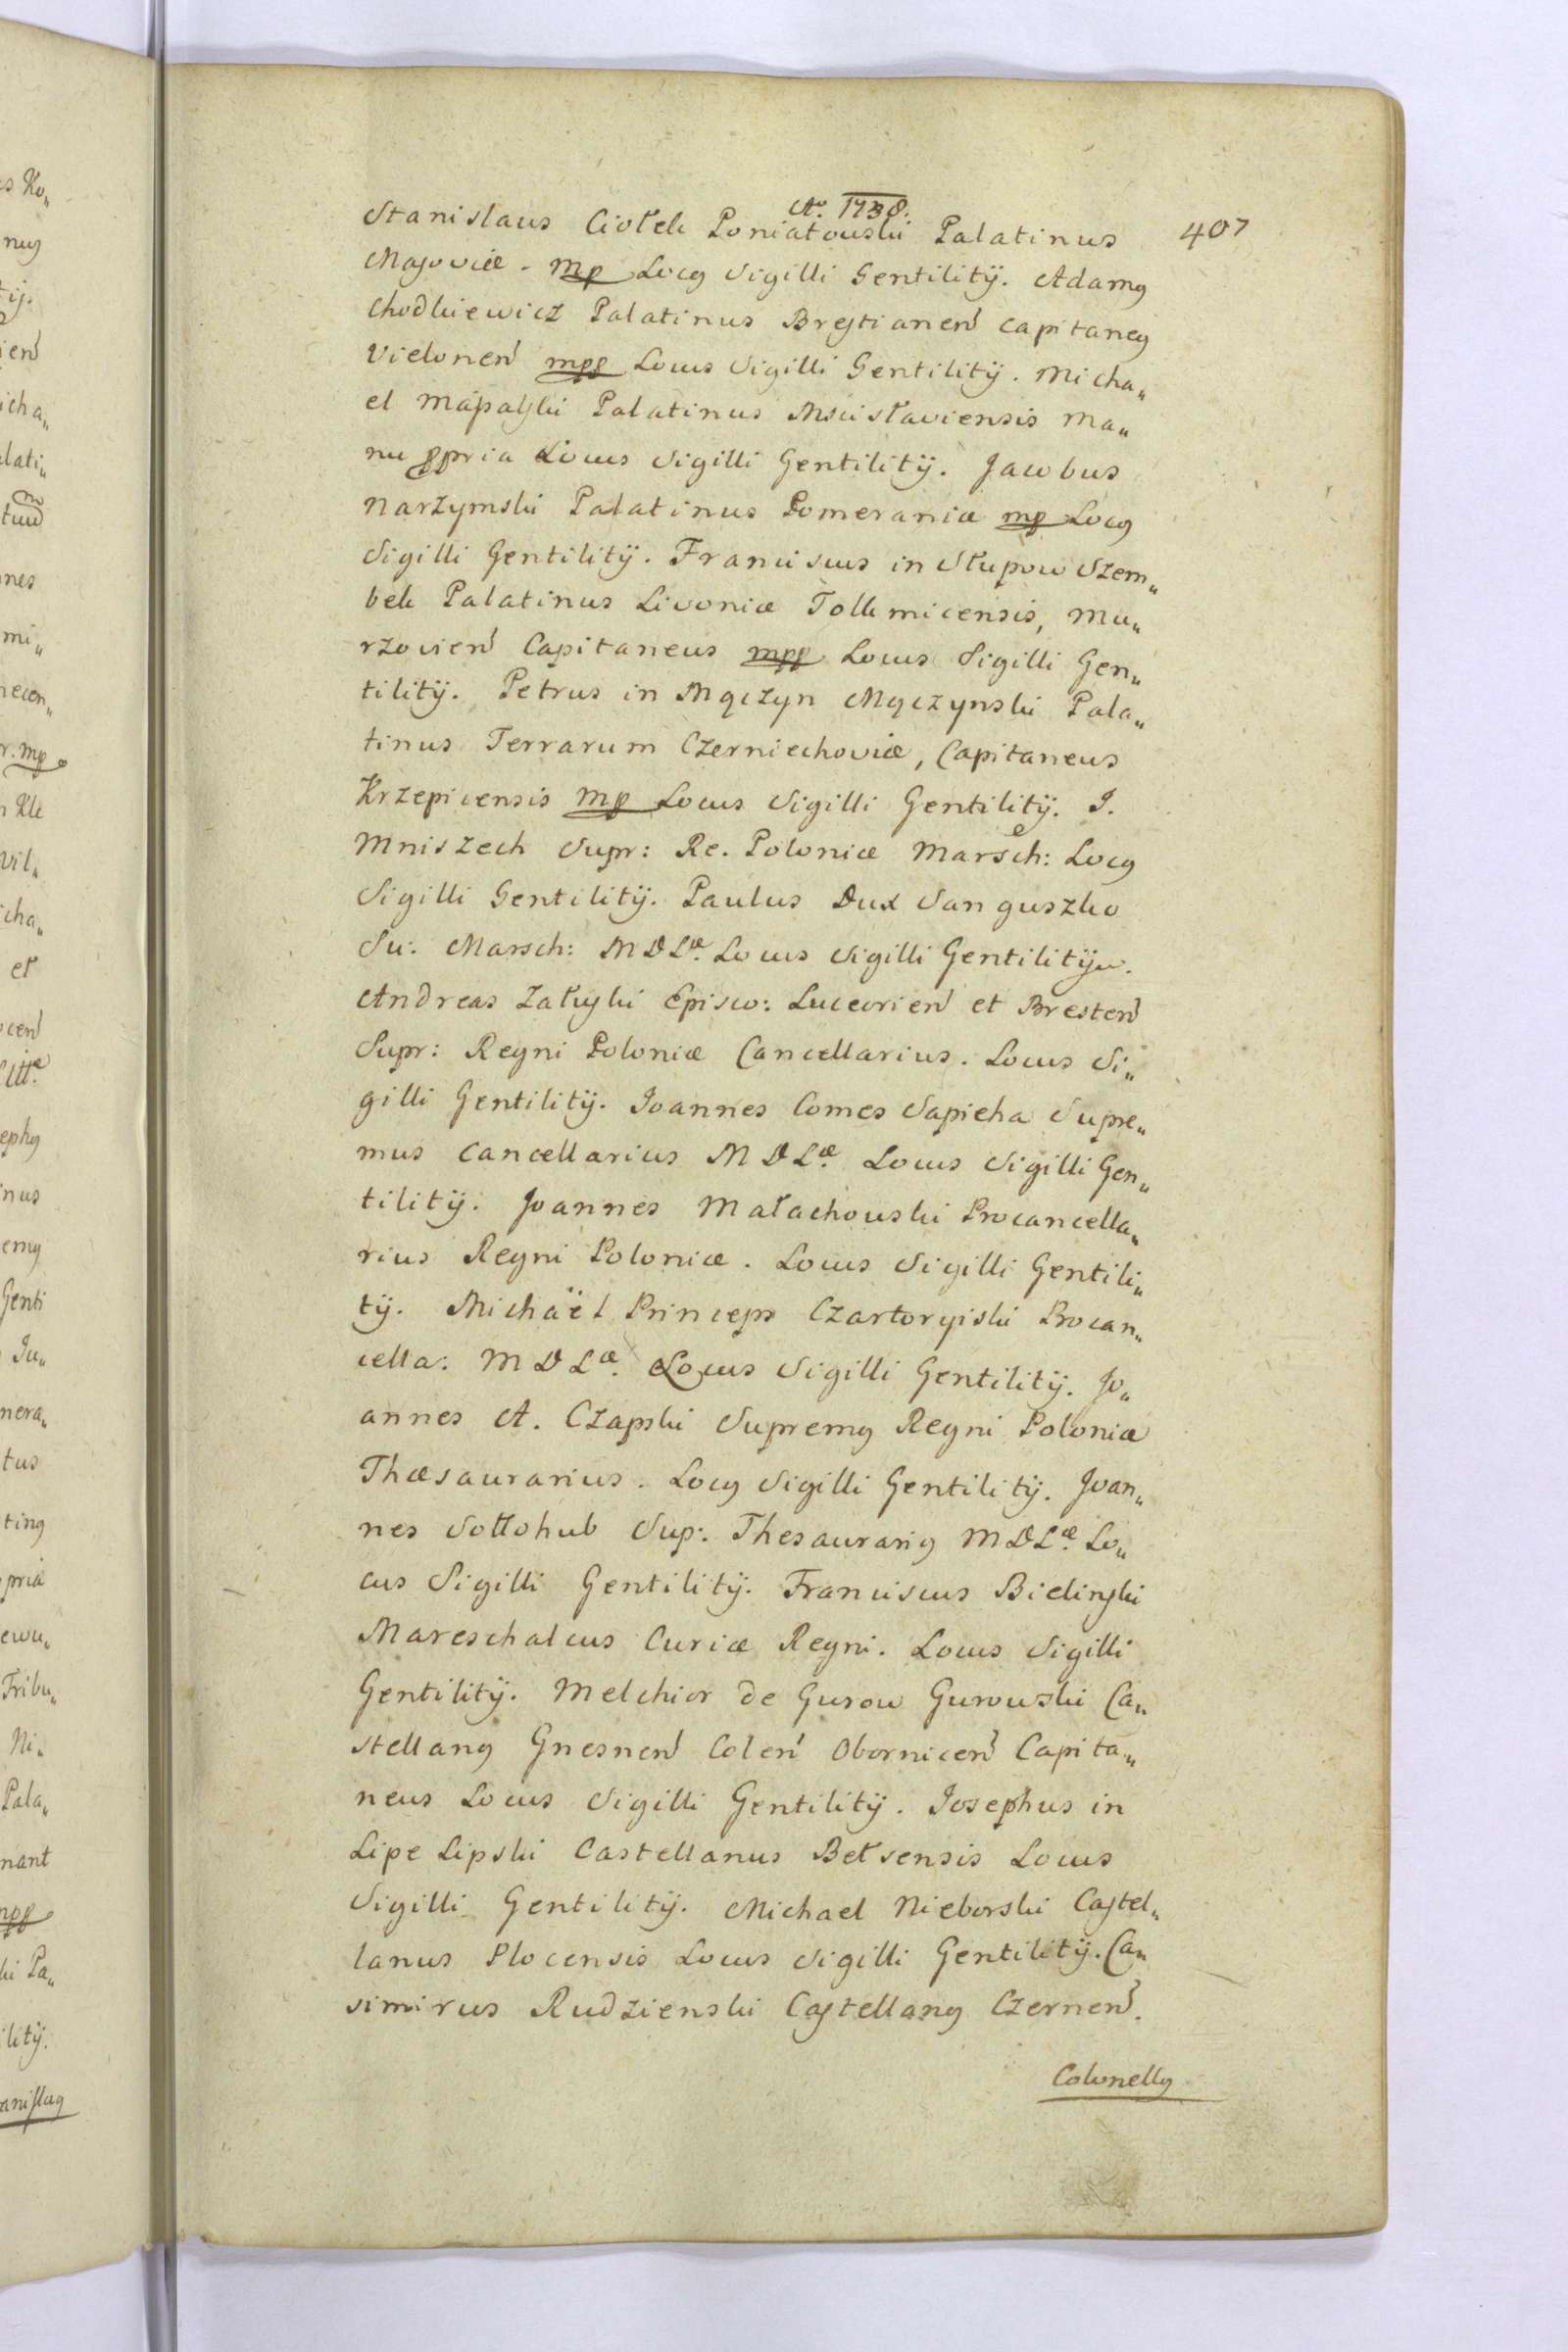 Ao. 1738.
407
Stanislaus Ciołek Poniatouski Palatinus
Masoviæ. mp Locq Sigilli Gentilitÿ. Adamq
Chodkiewicz Palatinus Brestianen Capitaneq
Vielonen mpp Locus Sigilli Gentilitÿ. Micha„
el Masalski Palatinus Mscisłaviensis Ma„
nu ppria Locus Sigilli Gentilitÿ. Jacobus
Narzymski Palatinus Pomeraniæ mp Locq
Sigilli Gentilitÿ. Franciscus in Słupow Szem„
bek Palatinus Livoniæ Tolkmicensis, Mu„
rzovien Capitaneus mpp Locus Sigilli Gen„
tilitÿ. Petrus in Męczyn Męczynski Pala„
tinus Terrarum Czerniechoviæ, Capitaneus
Krzepicensis mp Locus Sigilli Gentilitÿ. J.
Mniszech Supr: Re. Poloniæ Marsch: Locq
Sigilli Gentilitÿ. Paulus Dux Sanguszko
Su: Marsch: M D Læ. Locus Sigilli Gentilitÿ.
Andreas Załuski Episco: Luceorien et Bresten
Supr: Regni Poloniæ Cancellarius. Locus Si„
gilli Gentilitÿ. Joannes Comes Sapieha Supre„
mus Cancellarius M D Læ. Locus Sigilli Gen„
tilitÿ. Joannes Małachouski Procancella„
rius Regni Poloniæ. Locus Sigilli Gentili„
tÿ. Michaël Princeps Czartoryiski Procan„
cella: M D Læ. Locus Sigilli Gentilitÿ. Jo„
annes A. Czapski Supremq Regni Poloniæ
Thæsaurarius. Locq Sigilli Gentilitÿ. Joan„
nes Sołłohub Sup: Thesaurariq M D Læ. Lo„
cus Sigilli Gentilitÿ. Franciscus Bielinski
Mareschalcus Curiæ Regni. Locus Sigilli
Gentilitÿ. Melchior de Gurow Gurowski Ca„
stellanq Gnesnen Colen Obornicen Capita„
neus Locus Sigilli Gentilitÿ. Josephus in
Lipe Lipski Castellanus Bełsensis Locus
Sigilli Gentilitÿ. Michael Nieborski Castel„
lanus Plocensis Locus Sigilli Gentilitÿ. Ca„
simirus Rudzienski Castellanq Czernen.
Colonellq